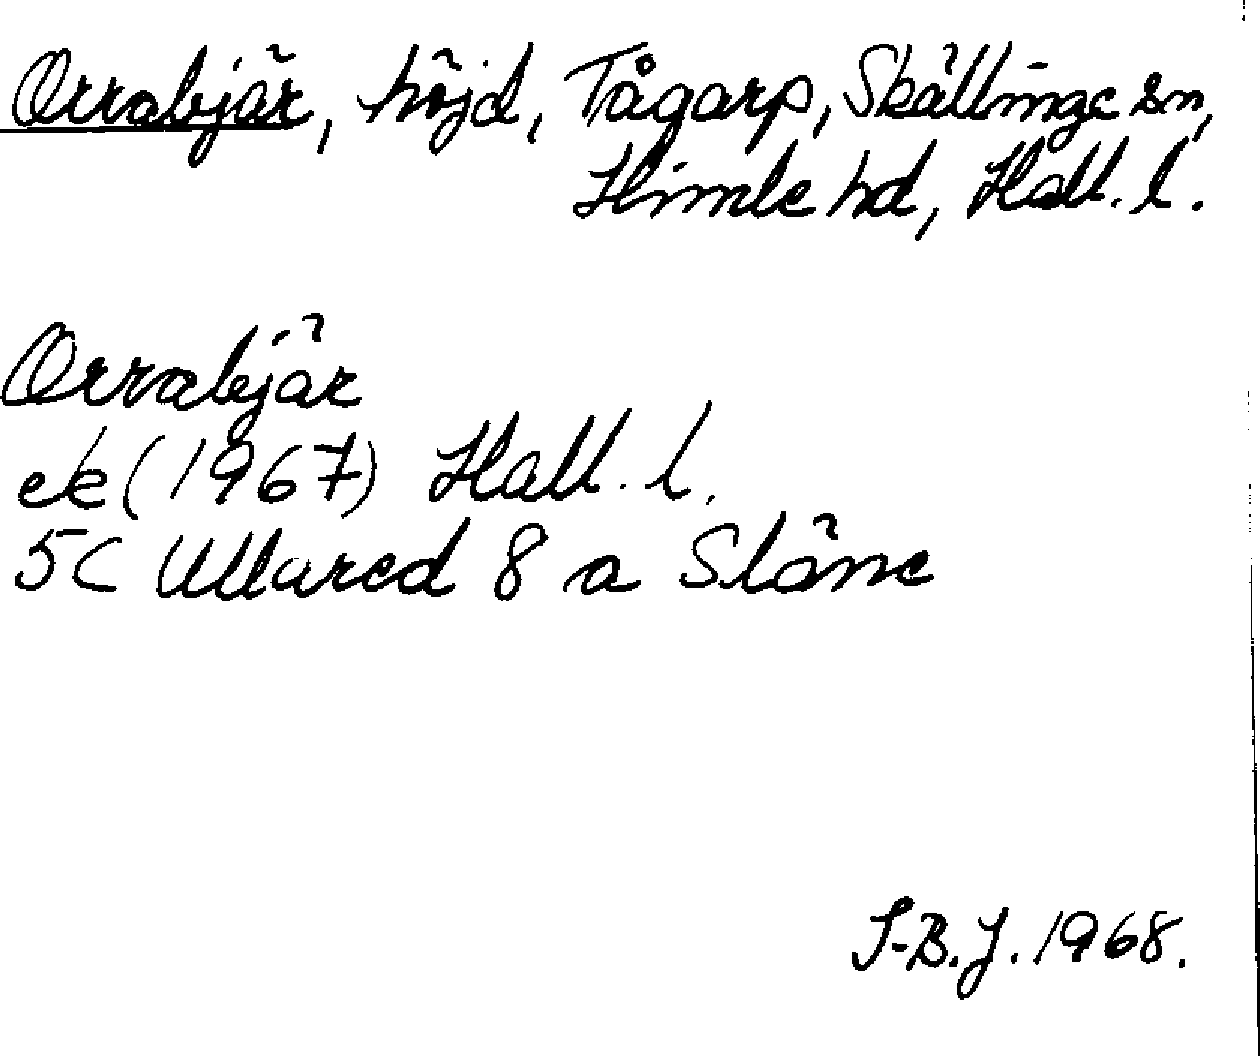 Orrabjär, höjd, Tågarp, Skällinge sn,
Himle hd, Hall. l.
Orrabjär
ek (1967) Hall. l.
5C Ullared 8 a Slöne
S-B.J. 1968.